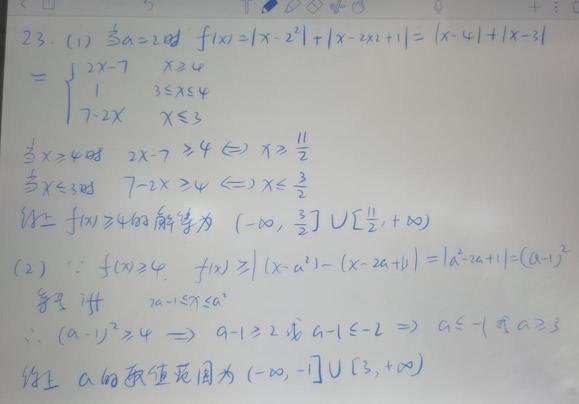 23. (1) 当a=2时 f(x)=|x-2²|+|x-2×2+1|=|x-4|+|x-3|
= { 2x-7 x≥4
1 3≤x≤4
7-2x x≤3
当x≥4时 2x-7≥4 <=> x≥11/2
当x≤3时 7-2x≥4 <=> x≤3/2
综上 f(x)≥4的解集为 (-∞, 3/2]∪[11/2, +∞)
(2) ∵ f(x)≥4. f(x)≥|(x-a²)-(x-2a+1)|=|a²-2a+1|=(a-1)²
等号 iff 2a-1≤x≤a²
∴ (a-1)²≥4 => a-1≥2或a-1≤-2 => a≤-1或a≥3
综上 a的取值范围为(-∞, -1]∪[3, +∞)